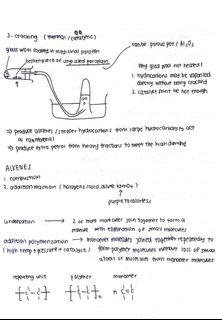 3. cracking (thermal / catalytic)
glass wool soaking in medicinal paraffin
broken piece of unglazed porcelain
can be : porous pot / Al₂O₃
Why glass wool not heated?
1. hydrocarbons may be vaporised
directly without being cracked
2. catalyst must be hot enough
⇒ produce alkenes / smaller hydrocarbons from large hydrocarbons to act
as raw material
⇒ produce extra petrol from heavy fractions to meet the high demand
ALKENES
1. combustion
2. addition reaction (halogens / acid, alkaline KMnO₄)
purple to colourless
condensation → 2 or more molecules join together to form a
molecule with elimination of small molecules
addition polymerization → monomer molecules joined together repeatedly to
(high temp + pressure + catalyst) form polymer molecules without loss of small
atoms or molecules from monomer molecules
repeating unit polymer monomer